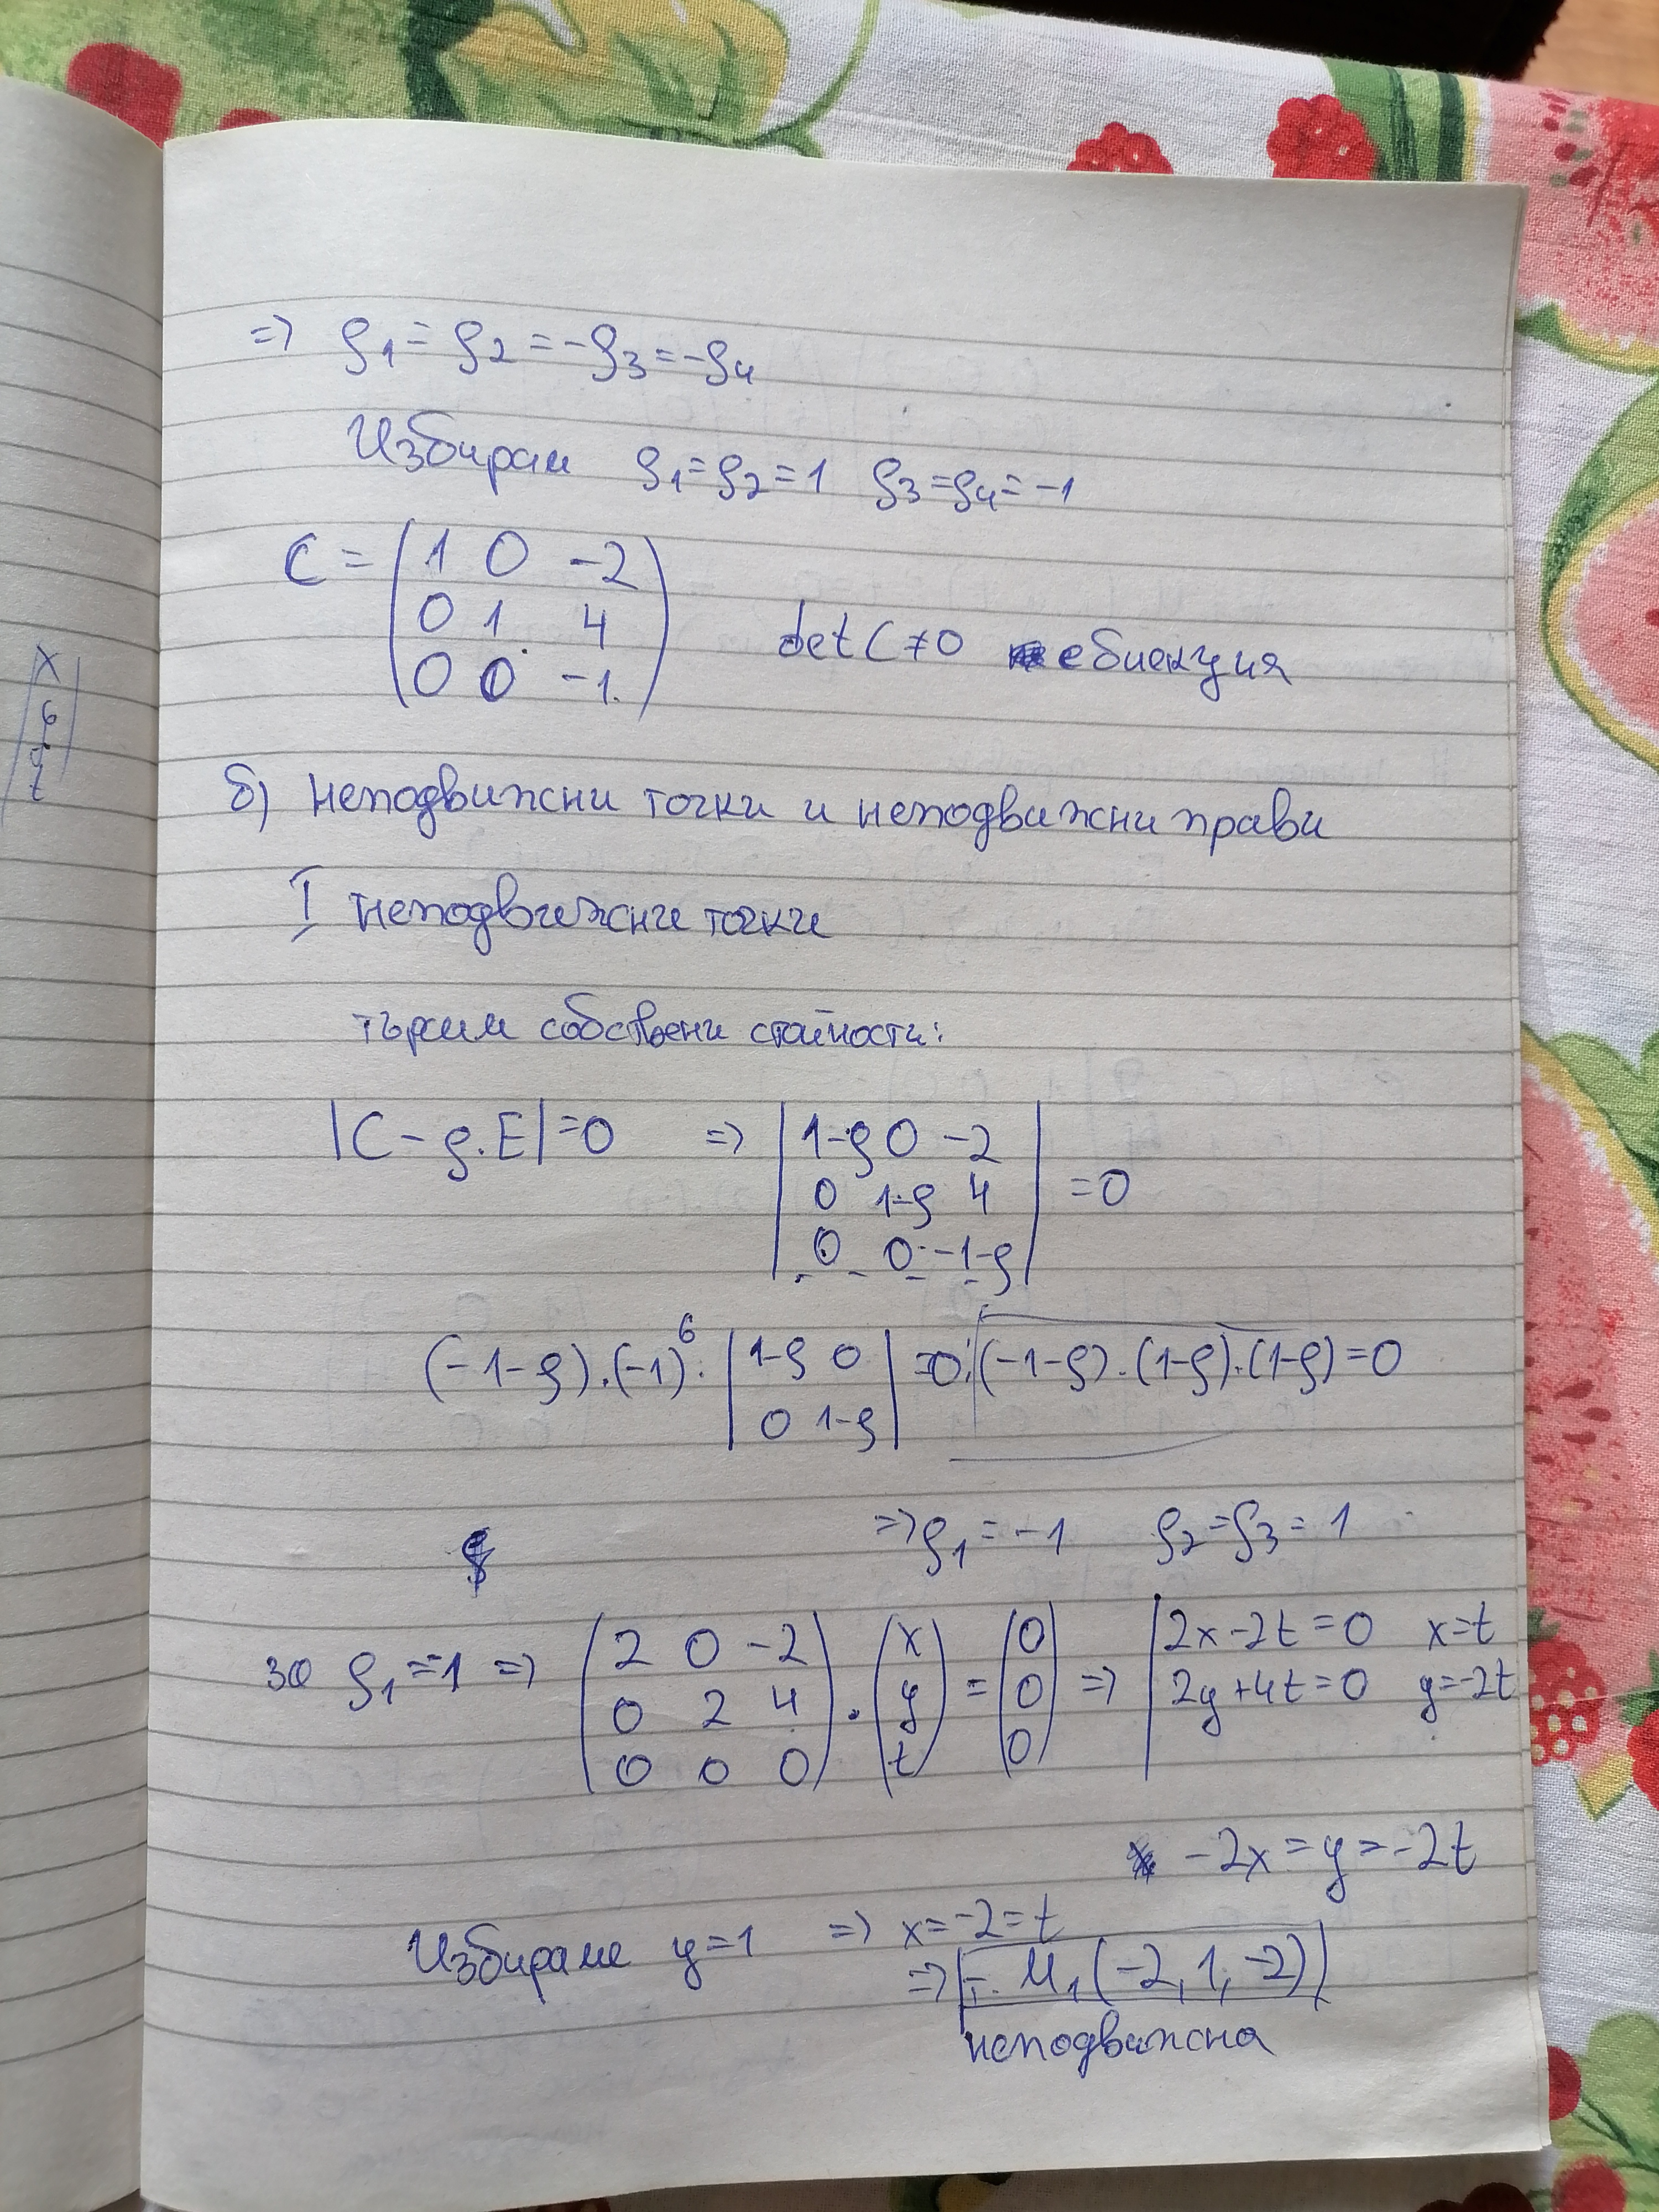 => ρ1 = ρ2 = -ρ3 = -ρ4
Избирам ρ1=ρ2=1 ρ3=ρ4=-1
C = (1 0 -2
0 1 4
0 0 -1) det C≠0 е биекция
б) неподвижни точки и неподвижни прави
I неподвижни точки
търсим собствени стойности:
|C-ρ.E|=0 => |1-ρ 0 -2
0 1-ρ 4
0 0 -1-ρ| =0
(-1-ρ).(-1)^6. |1-ρ 0
0 1-ρ| =0; (-1-ρ).(1-ρ).(1-ρ)=0
=> ρ1=-1 ρ2=ρ3=1
за ρ1=-1 => (2 0 -2
0 2 4
0 0 0) . (x
y
t) = (0
0
0) => |2x-2t=0 x=t
2y+4t=0 y=-2t
-2x=y=-2t
Избираме y=1 => x=-2=t
=> т. M1(-2,1,-2)
неподвижна
x
y
t